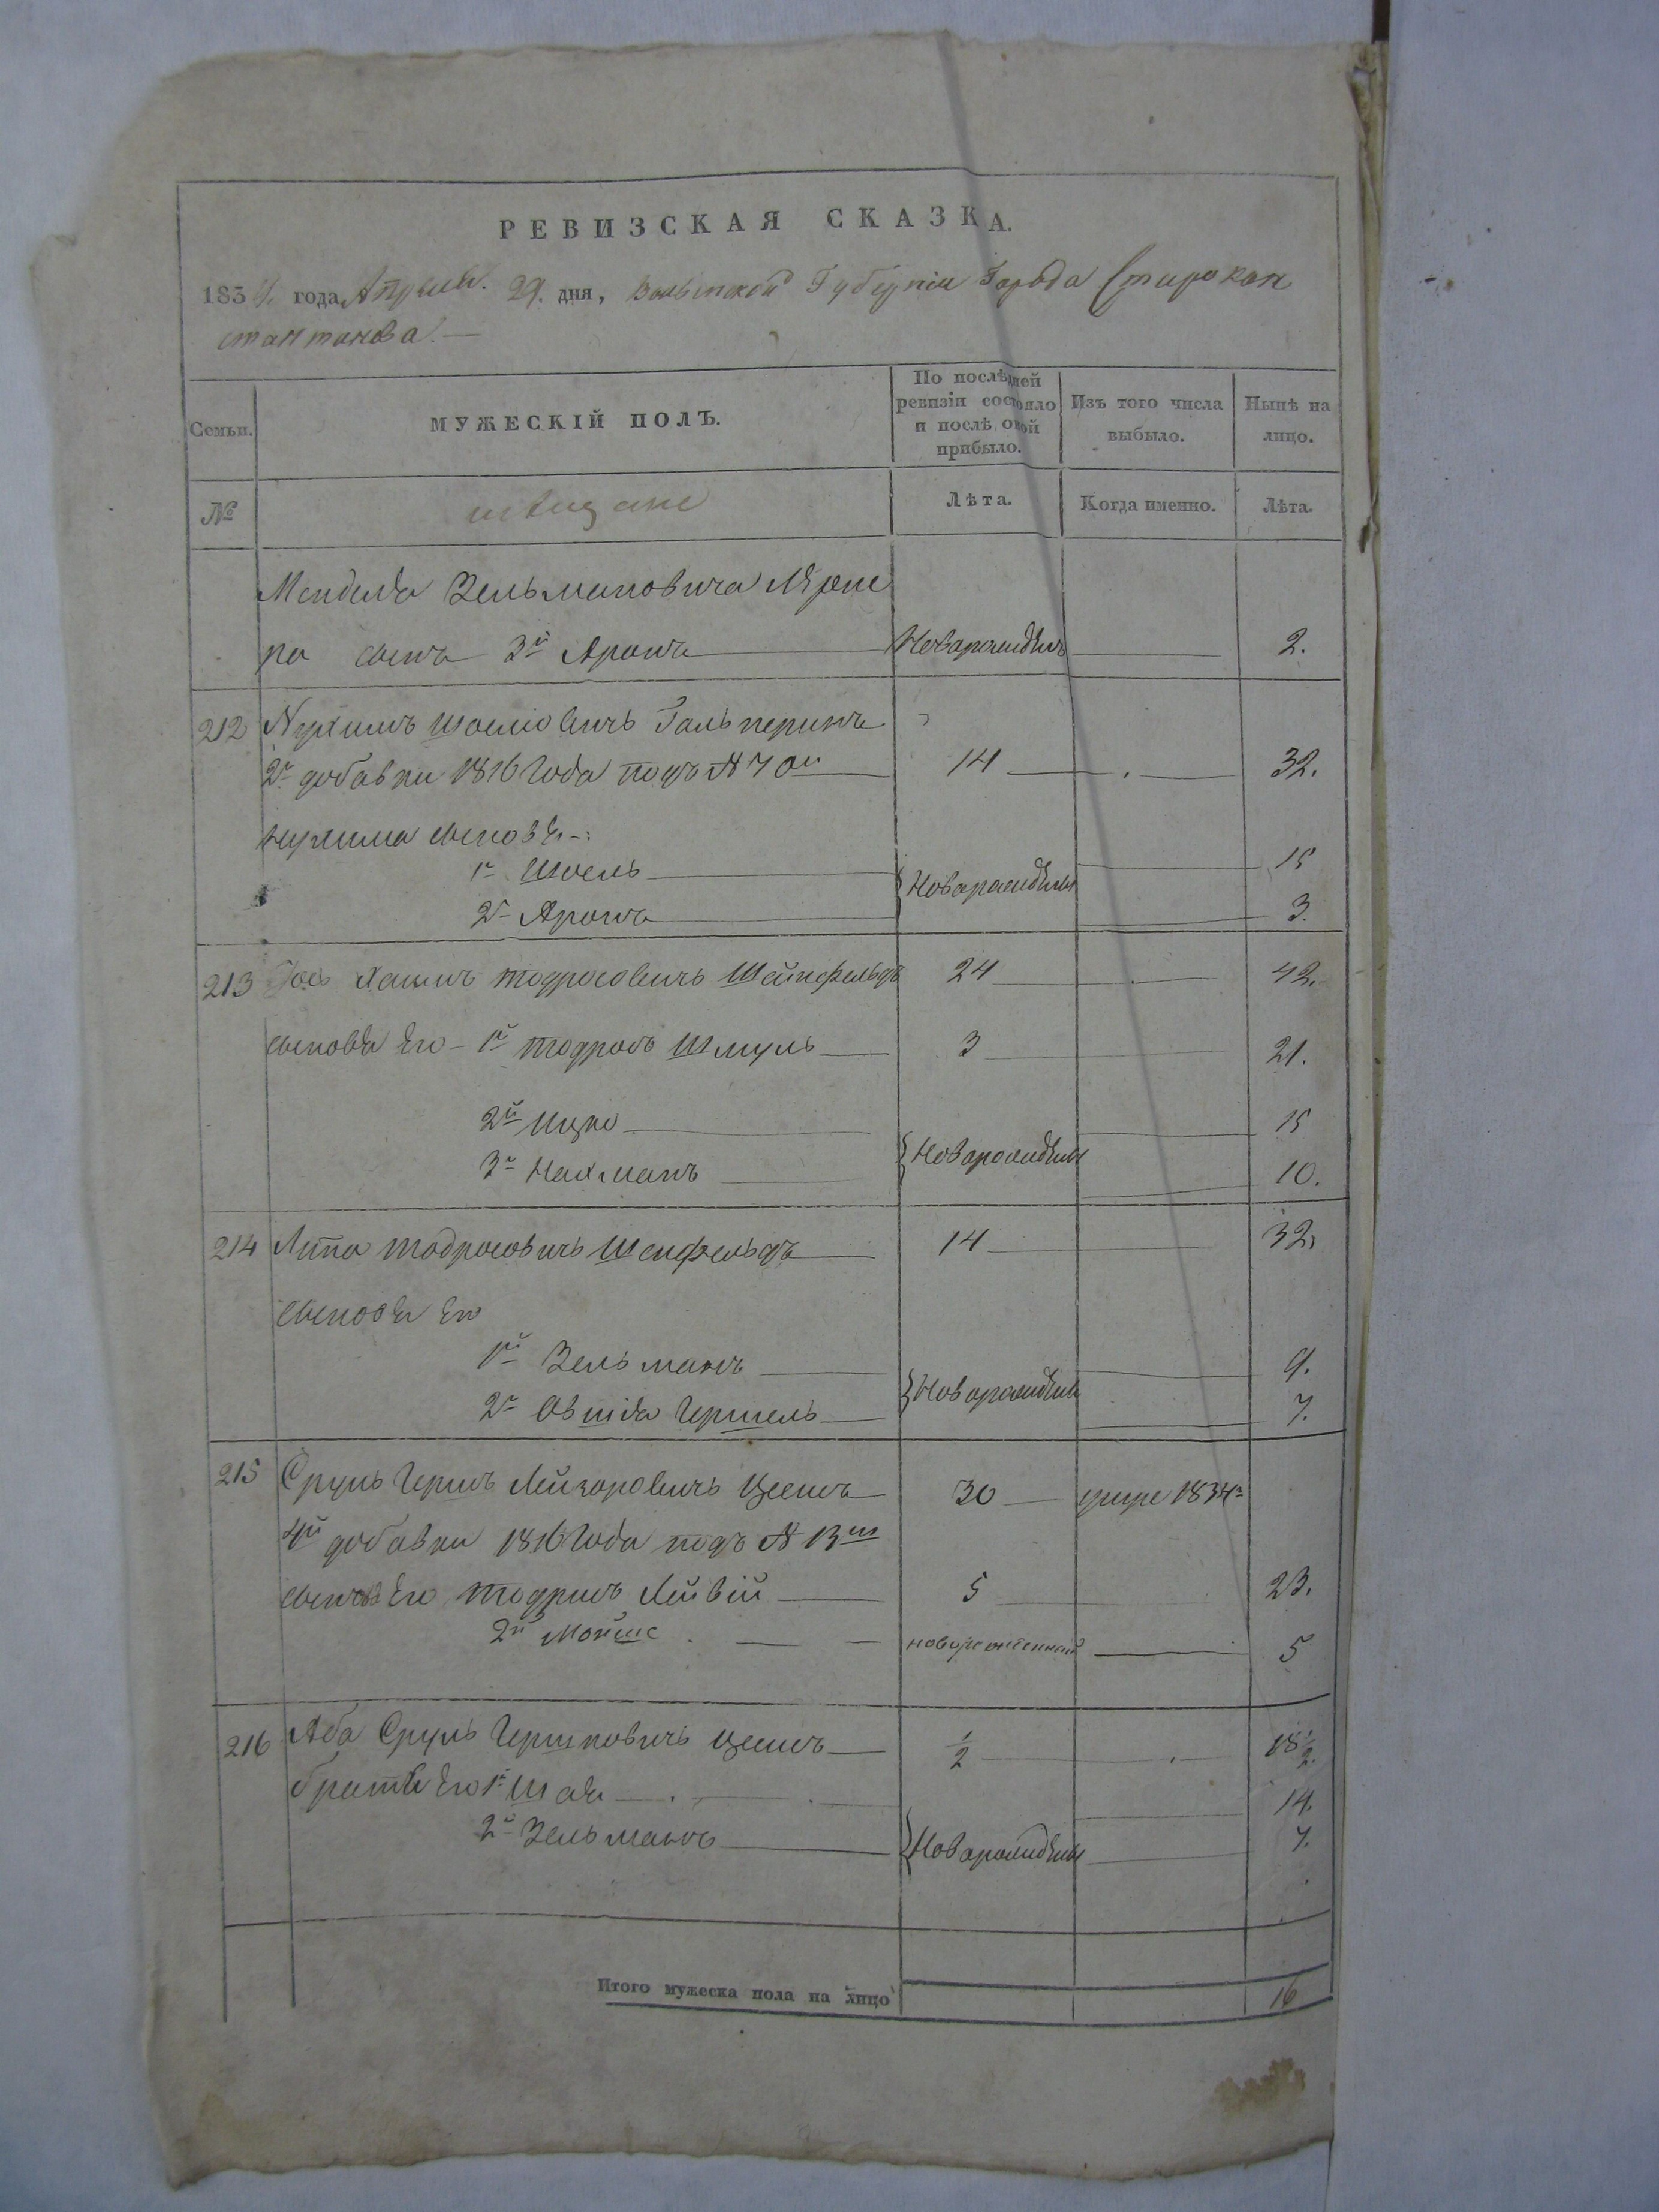 РЕВИЗСКАЯ СКАЗКА.
1834 года Апреля 29 дня, Волынской Губерніи Города Старокон
стантинова.—
Семьи. МУЖЕСКІЙ ПОЛЪ. По послѣдней ревизіи состояло и послѣ оной прибыло. Изъ того числа выбыло. Нынѣ на лицо.
№ мѣщане Лѣта. Когда именно. Лѣта.
Менделя Зельмановича
ра сынъ 3й Аронъ Новорожденъ 2.
212 Нухимъ Шоеліовичъ Гальперинъ
2й добавки 1816 Года подъ № 70м 14 32.
Нухима сыновья:
1й Шоель 15
Новорожденны
2й Аронъ 3.
213 Хаимъ Тодросовичъ Шейнфельдъ 24 42.
сыновья Его 1й Тодросъ Шмуль 3 21.
2й Ицко 15
Новорожденны
3й Нахманъ 10.
214 Липа Тодросовичъ Шенфельдъ 14 32.
сыновья Его
1й Зельманъ 9.
Новорожденны
2й Овшія Гершель 7.
215 Сруль Гершъ Лейзоровичъ Цесисъ 30 умре 1834г
4й добавки 1816 Года подъ № 13м
сыновья Его Тодрисъ Лейвій 5 23.
2й Мойше новорожденный 5
216 Аба Сруль Гершковичъ 1/2 18 1/2.
братья Его 1й Шая 14.
2й Зельманъ Новорожденны 7.
Итого мужеска пола на лицо 16